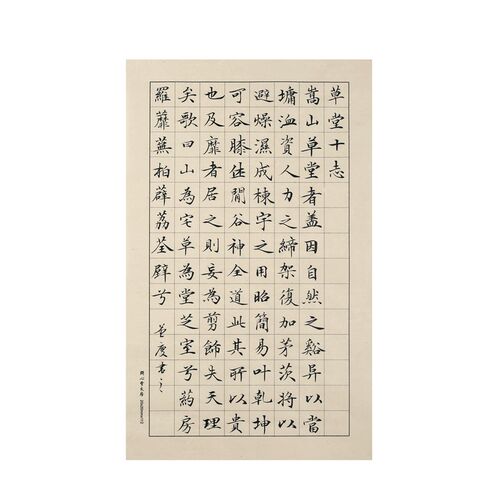 草堂十志
嵩山草堂者盖因自然之谿异以當
墉洫資人力之締架復加茅茨將以
避燥濕成棟宇之用昭簡易叶乾坤
可容膝休閒谷神全道此其所以貴
也及靡者居之則妄為剪飾失天理
矣歌曰山為宅草為堂芝室兮葯房
羅蘼蕪柏薜荔荃壁兮
慶書之